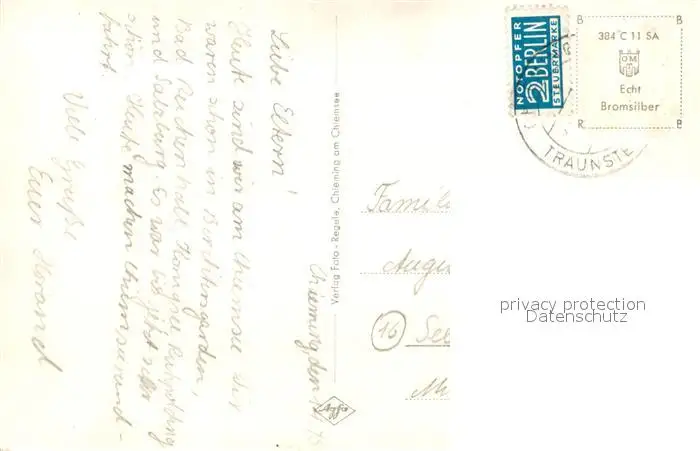 Chieming, den
Liebe Eltern!
Heute sind wir am Chiemsee. Wir
waren schon in Berchtesgaden,
Bad Reichenhall, Königsee, Ruhpolding
und Salzburg. Es war bis jetzt sehr
schön. Heute machen Chiemseerund-
fahrt.
Viele Grüße
Euer
Verlag Foto - Regele, Chieming am Chiemsee
Agfa
NOTOPFER
2 BERLIN
STEUERMARKE
TRAUNSTE
B B
384 C 11 SA
OM
Echt
Bromsilber
R B
Famil
Augu
(16) See
privacy protection
Datenschutz